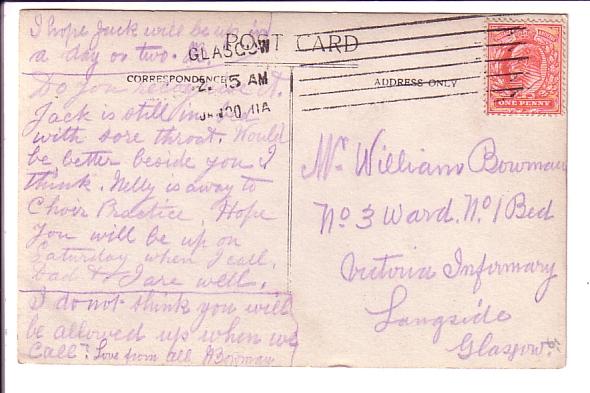 I hope Jack will be up in
a day or two.
POST CARD
GLASGOW
2. 15 AM
JA 20 11A
CORRESPONDENCE
ADDRESS ONLY
ONE PENNY
Do you
Jack is still in bed
with sore throat. Would
be better beside you I
think. Nelly is away to
Choir Practice. Hope
you will be up on
Saturday when I call.
Dad & I are well.
I do not think you will
be allowed up when we
call. Love from all Bowman
Mr. William Bowman
No 3 Ward. No 1 Bed
Victoria Infirmary
Langside
Glasgow.